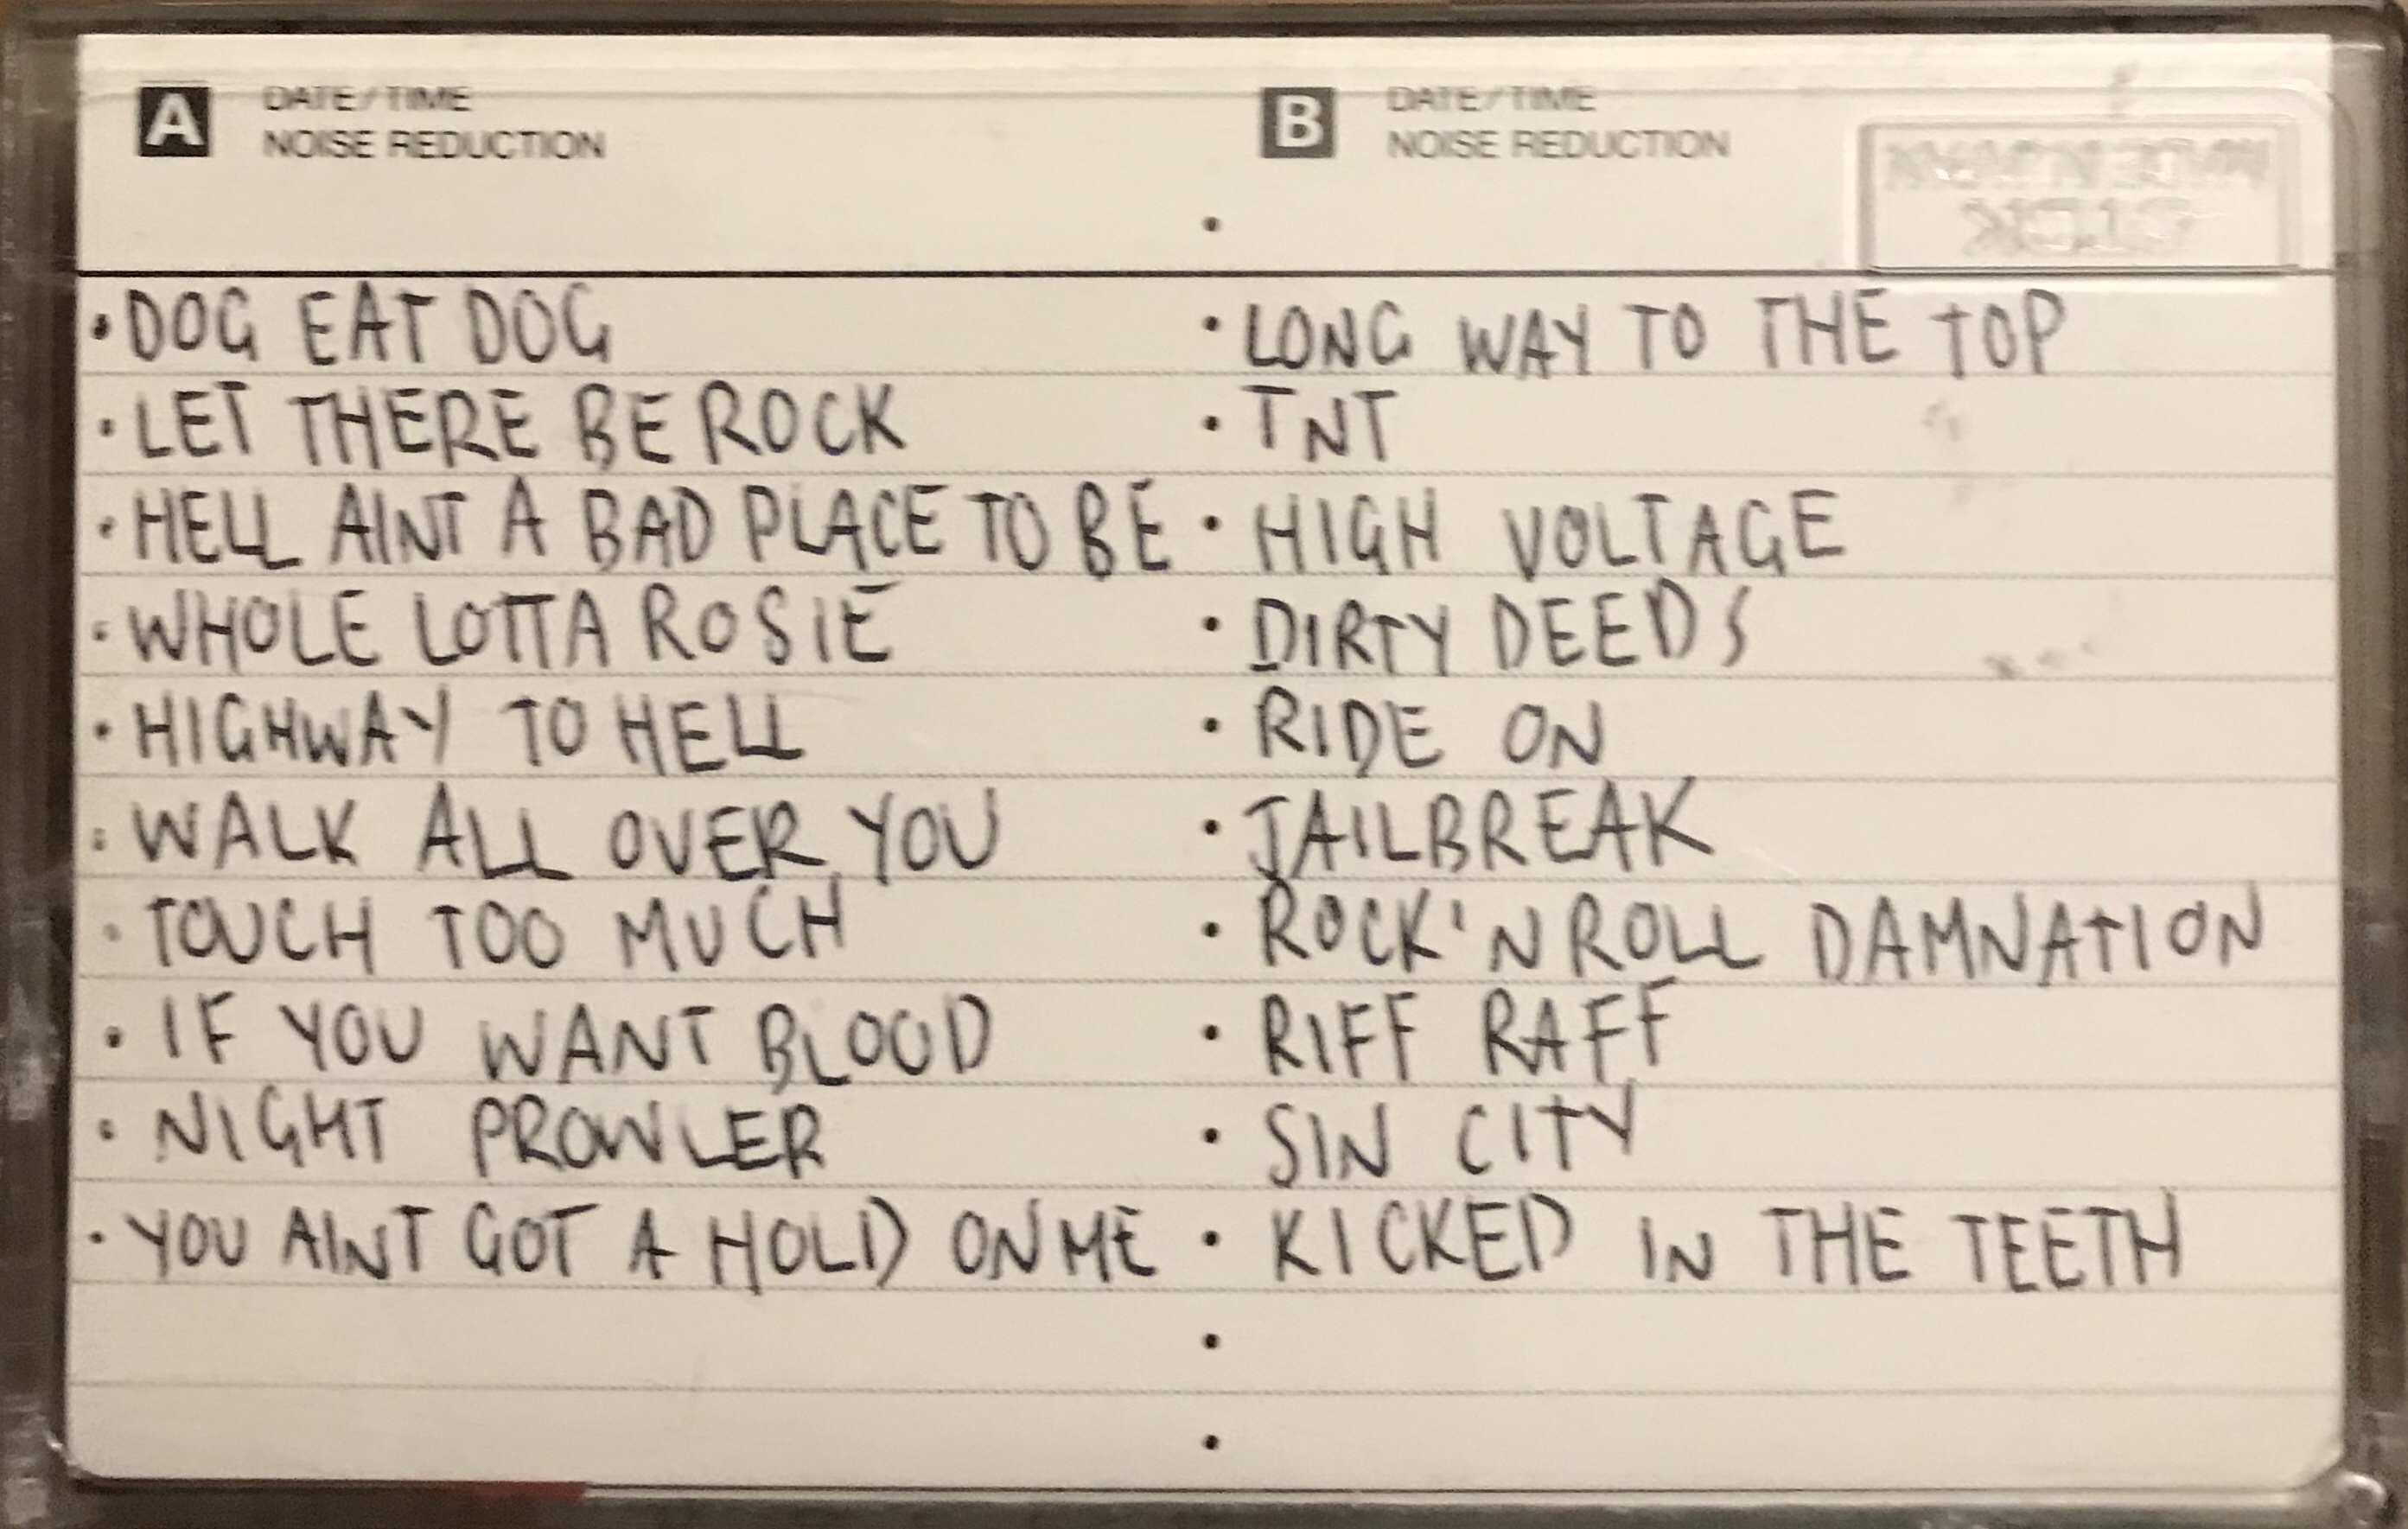 A DATE/TIME
NOISE REDUCTION
• DOG EAT DOG
• LET THERE BE ROCK
• HELL AINT A BAD PLACE TO BE
• WHOLE LOTTA ROSIE
• HIGHWAY TO HELL
• WALK ALL OVER YOU
• TOUCH TOO MUCH
• IF YOU WANT BLOOD
• NIGHT PROWLER
• YOU AINT GOT A HOLD ON ME
B DATE/TIME
NOISE REDUCTION
• LONG WAY TO THE TOP
• TNT
• HIGH VOLTAGE
• DIRTY DEEDS
• RIDE ON
• JAILBREAK
• ROCK'N ROLL DAMNATION
• RIFF RAFF
• SIN CITY
• KICKED IN THE TEETH